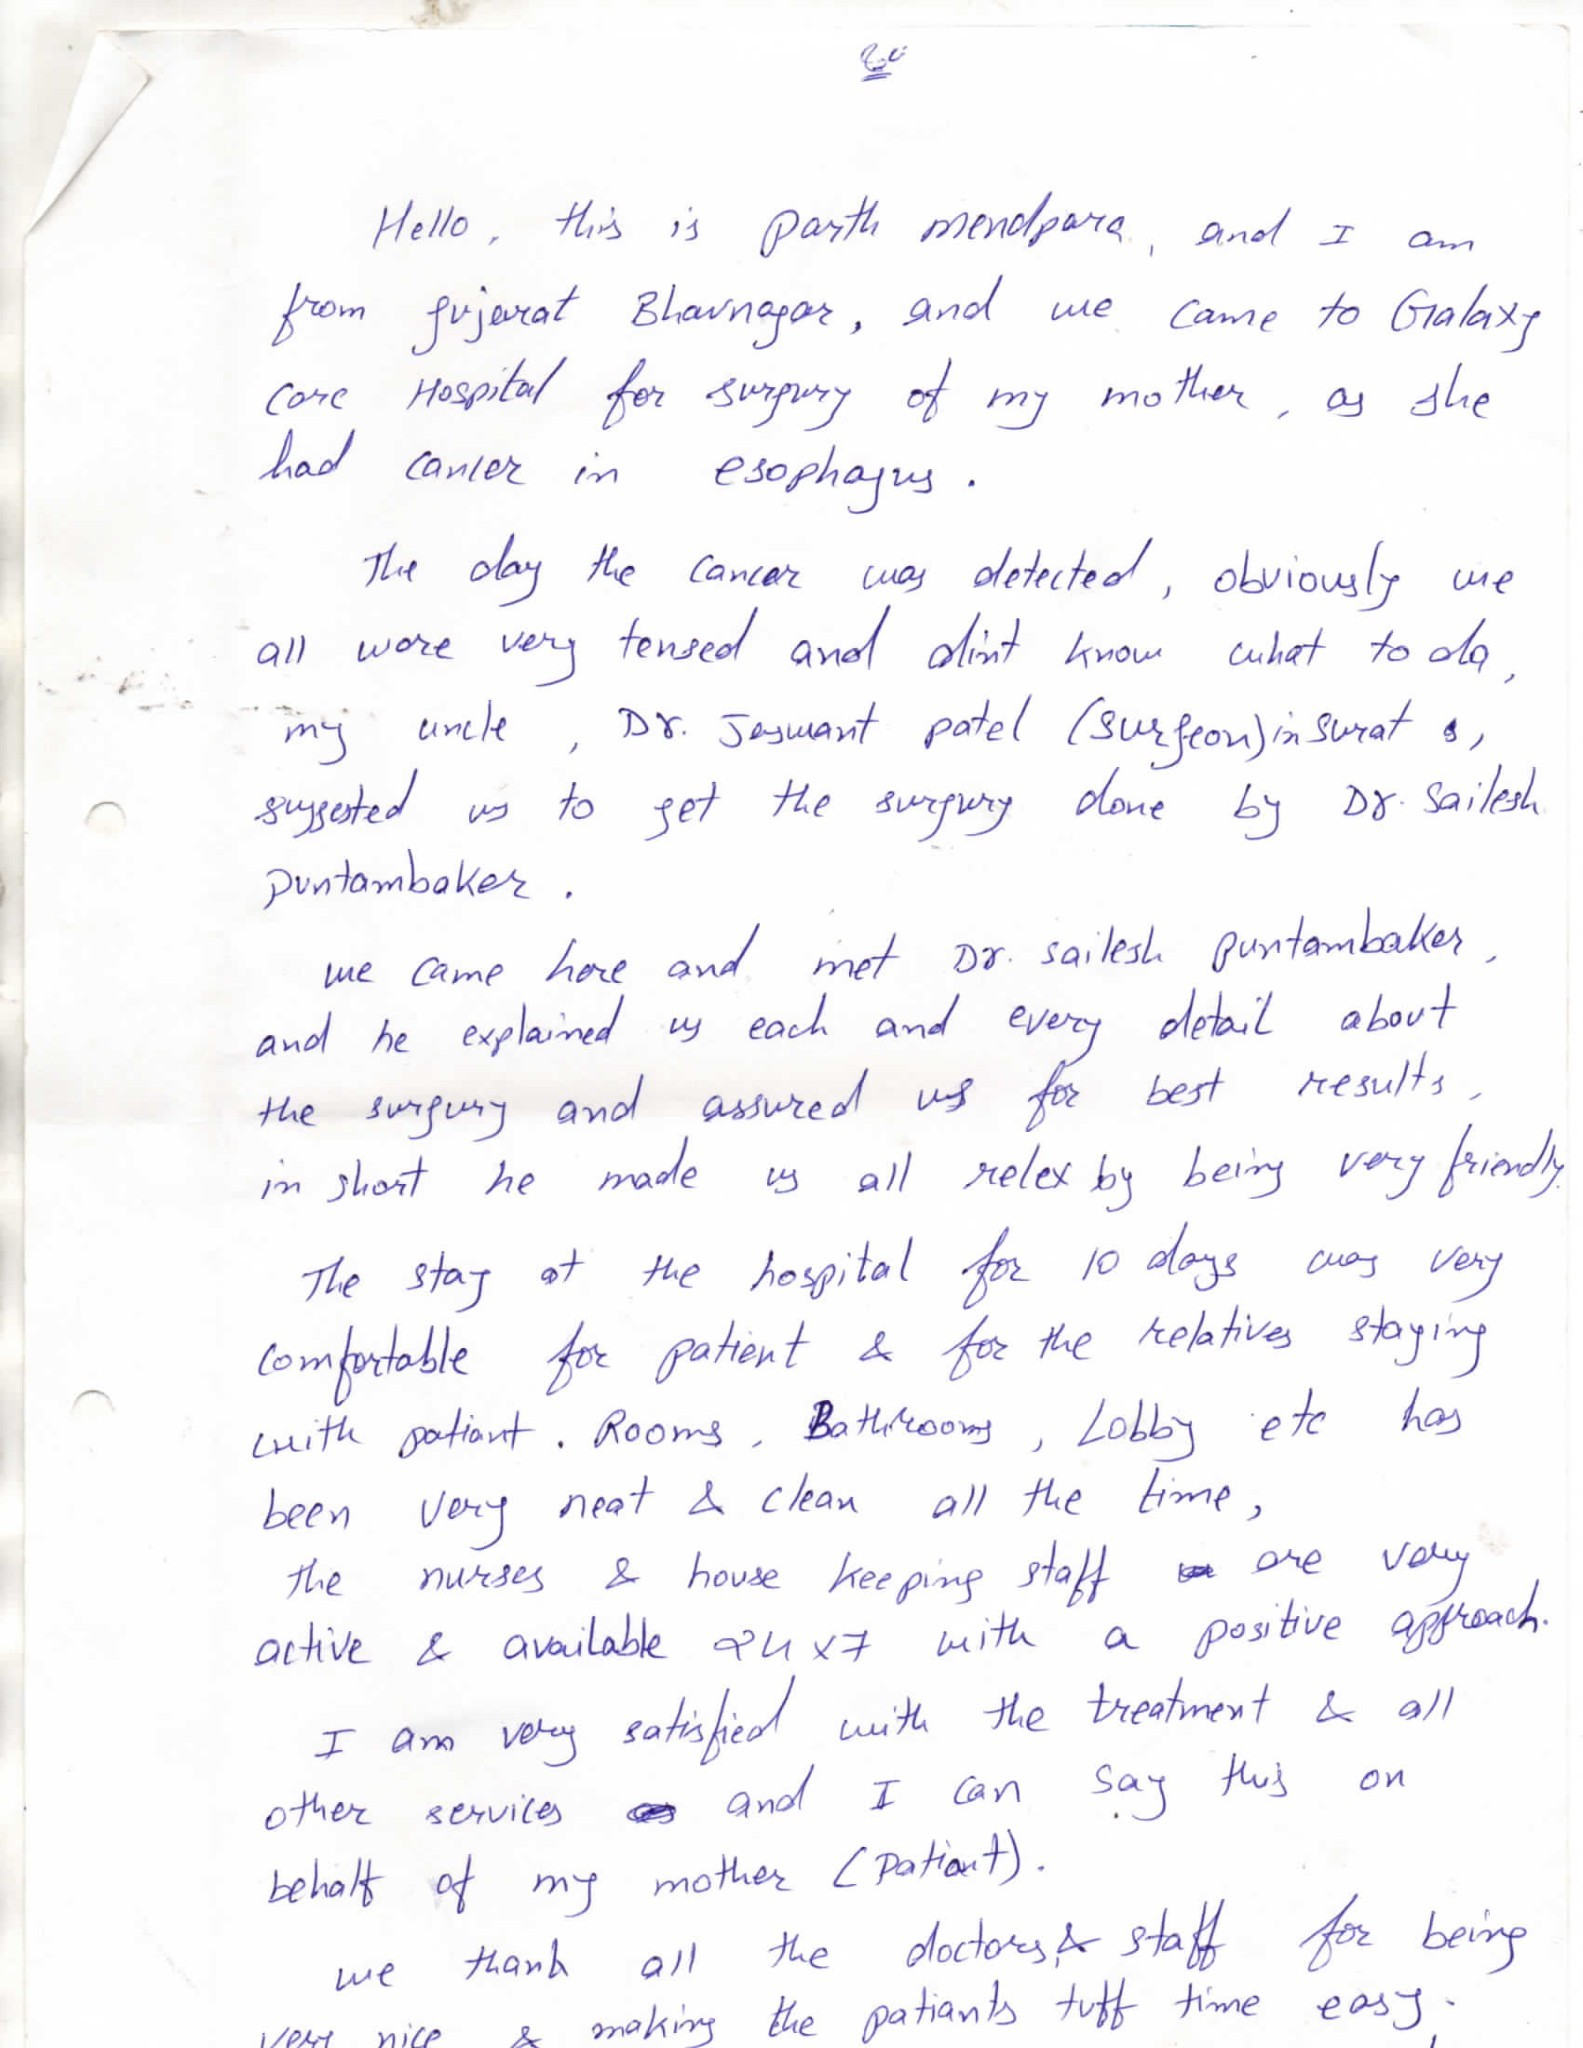 Hello, this is parth mendpara, and I am
from gujarat Bhavnagar, and we came to Galaxy
care Hospital for surgury of my mother, as she
had cancer in esophagus.
The day the cancer was detected, obviously we
all were very tensed and dint know what to do,
my uncle, Dr. Jaswant patel (surgeon) in surat,
suggested us to get the surgury done by Dr. Sailesh
puntambaker.
we came here and met Dr. sailesh puntambaker,
and he explained us each and every detail about
the surgury and assured us for best results,
in short he made us all relex by being very friendly.
The stay at the hospital for 10 days was very
comfortable for patient & for the relatives staying
with patiant. Rooms, Bathrooms, Lobby etc has
been very neat & clean all the time,
the nurses & house keeping staff are very
active & available 24x7 with a positive approach.
I am very satisfied with the treatment & all
other services and I can say this on
behalf of my mother (patiant).
we thank all the doctors & staff for being
very nice & making the patiants tuff time easy.